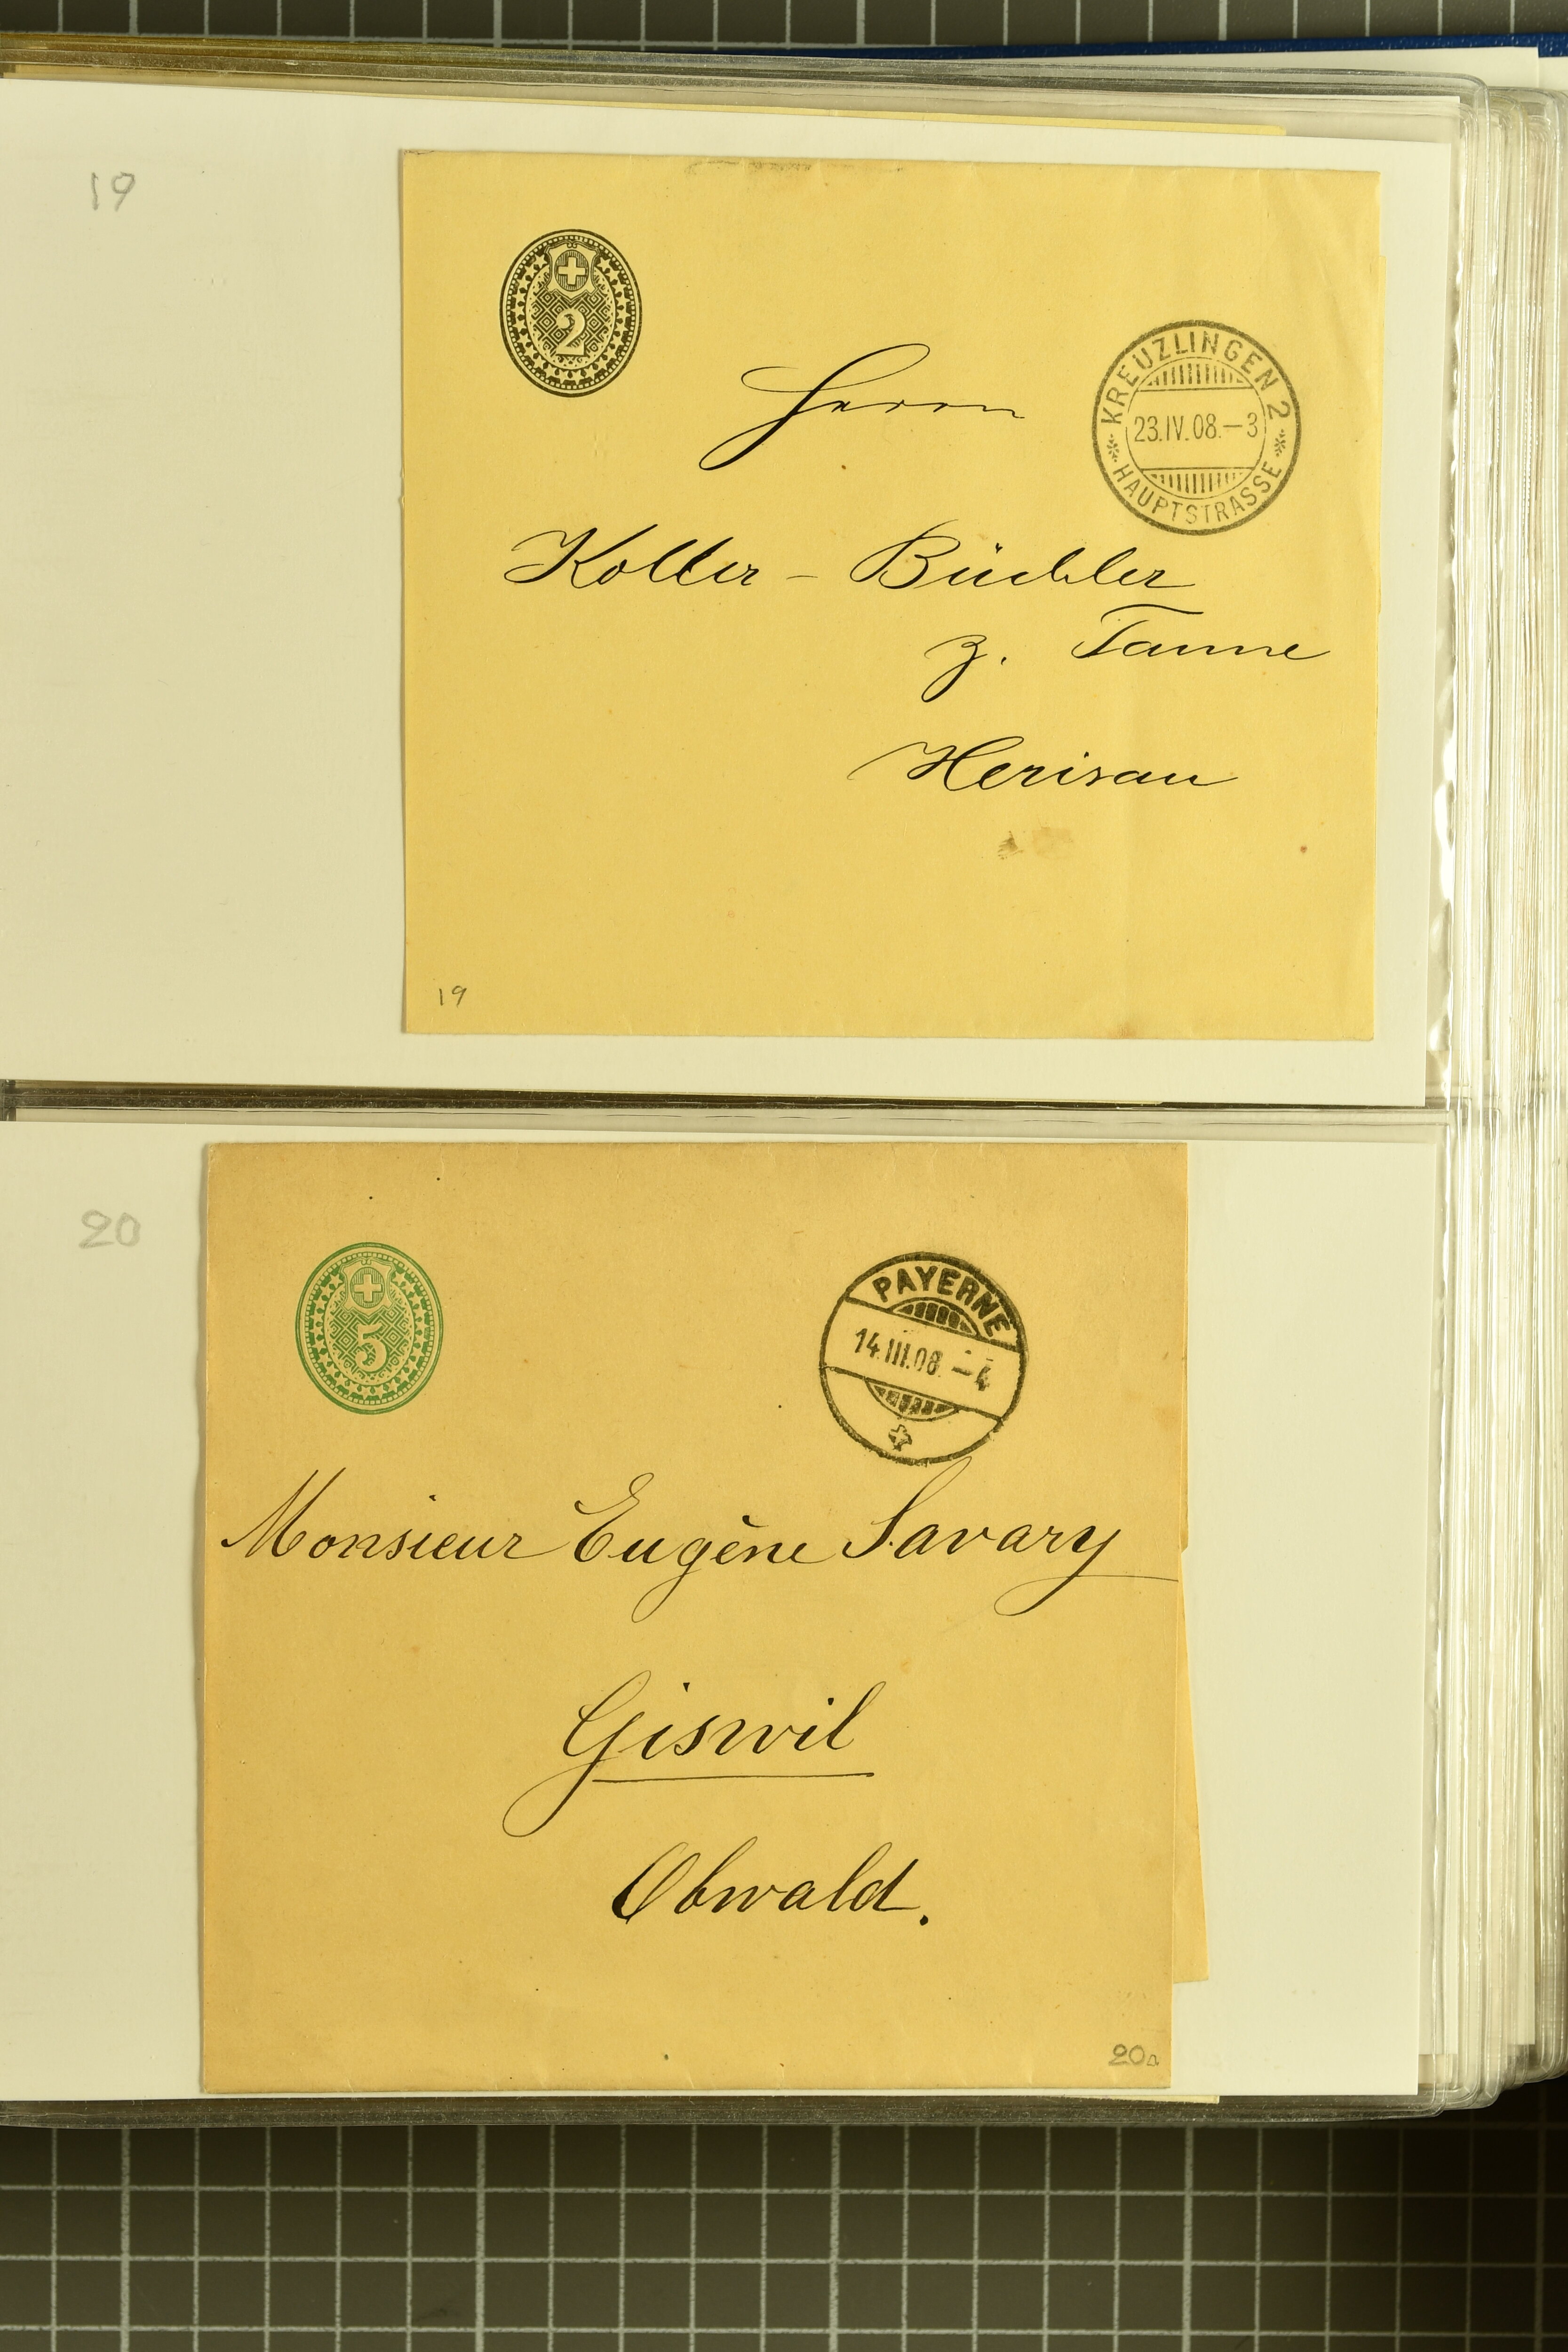 19
2
KREUZLINGEN 2
23.IV.08.–3
HAUPTSTRASSE
Herrn
Koller - Büchler
z. Tanne
Herisau
19
20
5
PAYERNE
14.III.08.–4
Monsieur Eugène Savary
Giswil
Obwald.
20a